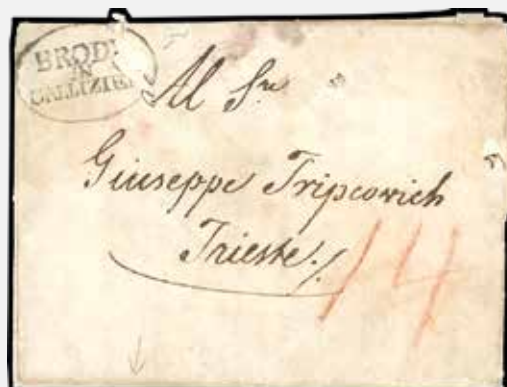 BRODY
IN
GALLIZIEN
Al Sr
Giuseppe Tripcovich
Trieste
14